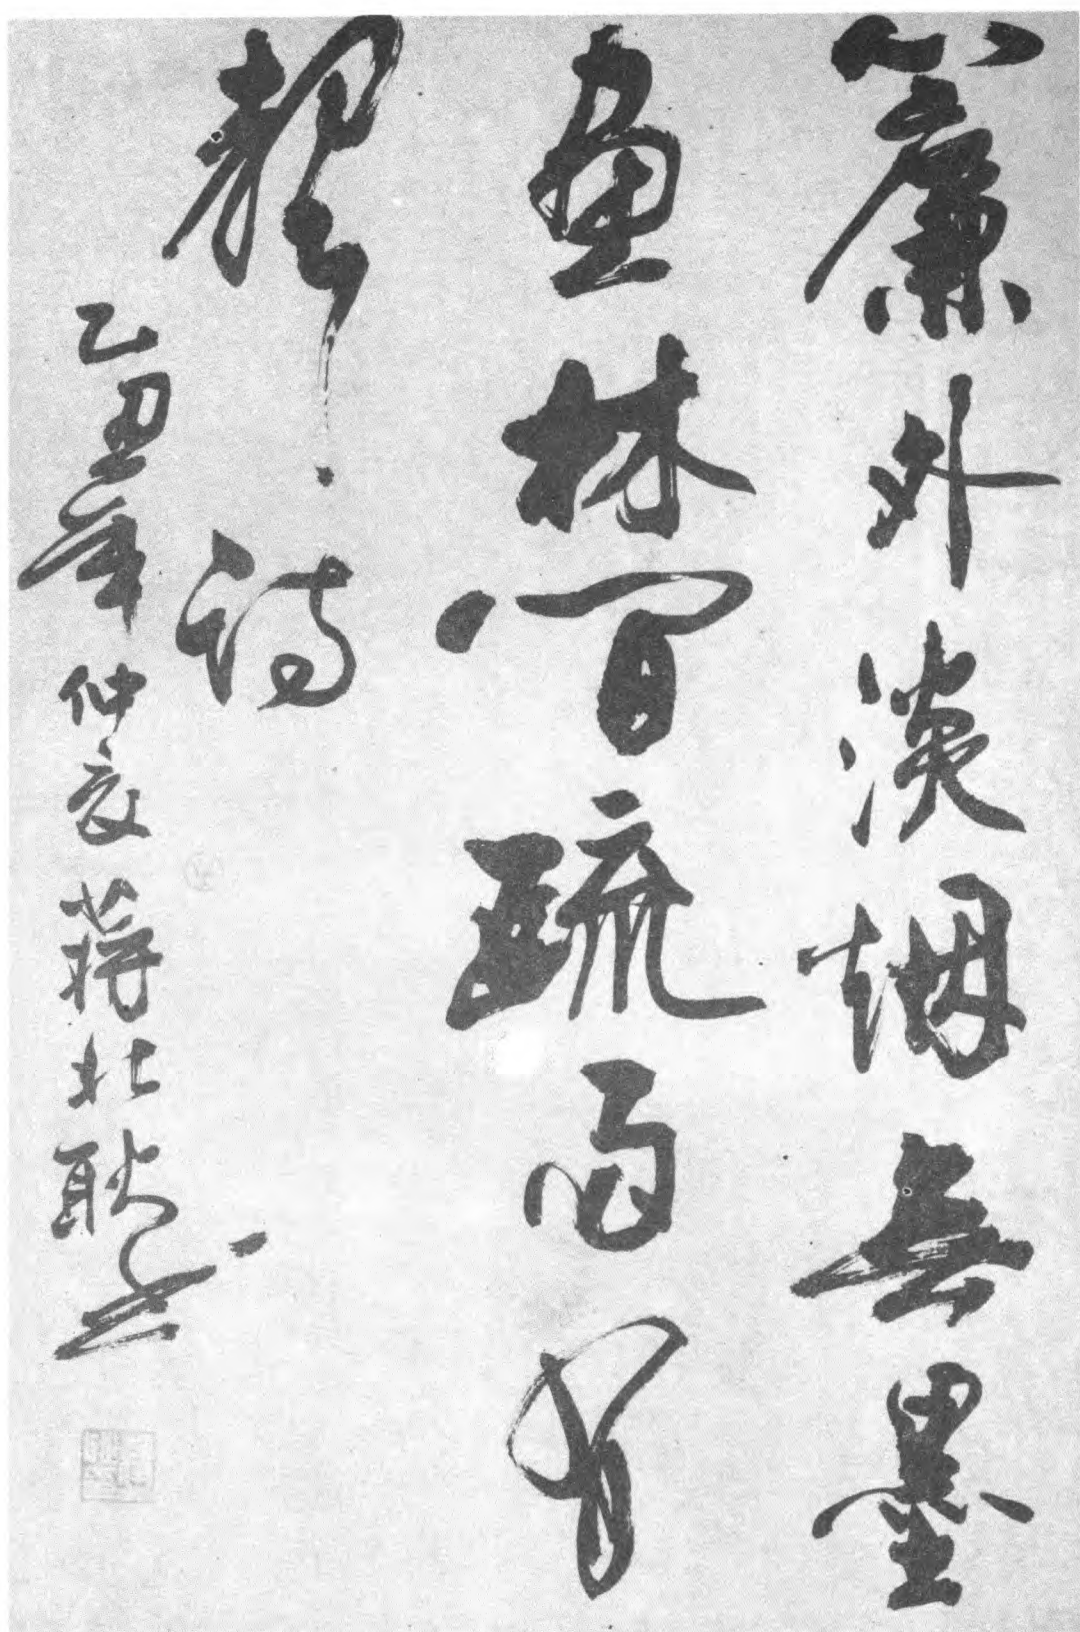 簾外淡烟無墨
畫林間疏雨有
聲詩
乙丑年仲夏蒋北耿书